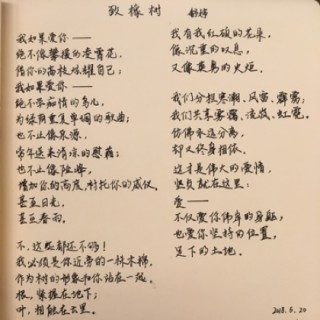 致橡树 舒婷
我如果爱你——
绝不像攀援的凌霄花,
借你的高枝炫耀自己;
我如果爱你——
绝不学痴情的鸟儿,
为绿荫重复单调的歌曲;
也不止像泉源,
常年送来清凉的慰藉;
也不止像险峰,
增加你的高度,衬托你的威仪。
甚至日光,
甚至春雨。
不,这些都还不够!
我必须是你近旁的一株木棉,
作为树的形象和你站在一起。
根,紧握在地下;
叶,相触在云里。
我有我红硕的花朵,
像沉重的叹息,
又像英勇的火炬。
我们分担寒潮、风雷、霹雳;
我们共享雾霭、流岚、虹霓。
仿佛永远分离,
却又终身相依。
这才是伟大的爱情,
坚贞就在这里:
爱——
不仅爱你伟岸的身躯,
也爱你坚持的位置,
足下的土地。
2018.5.20